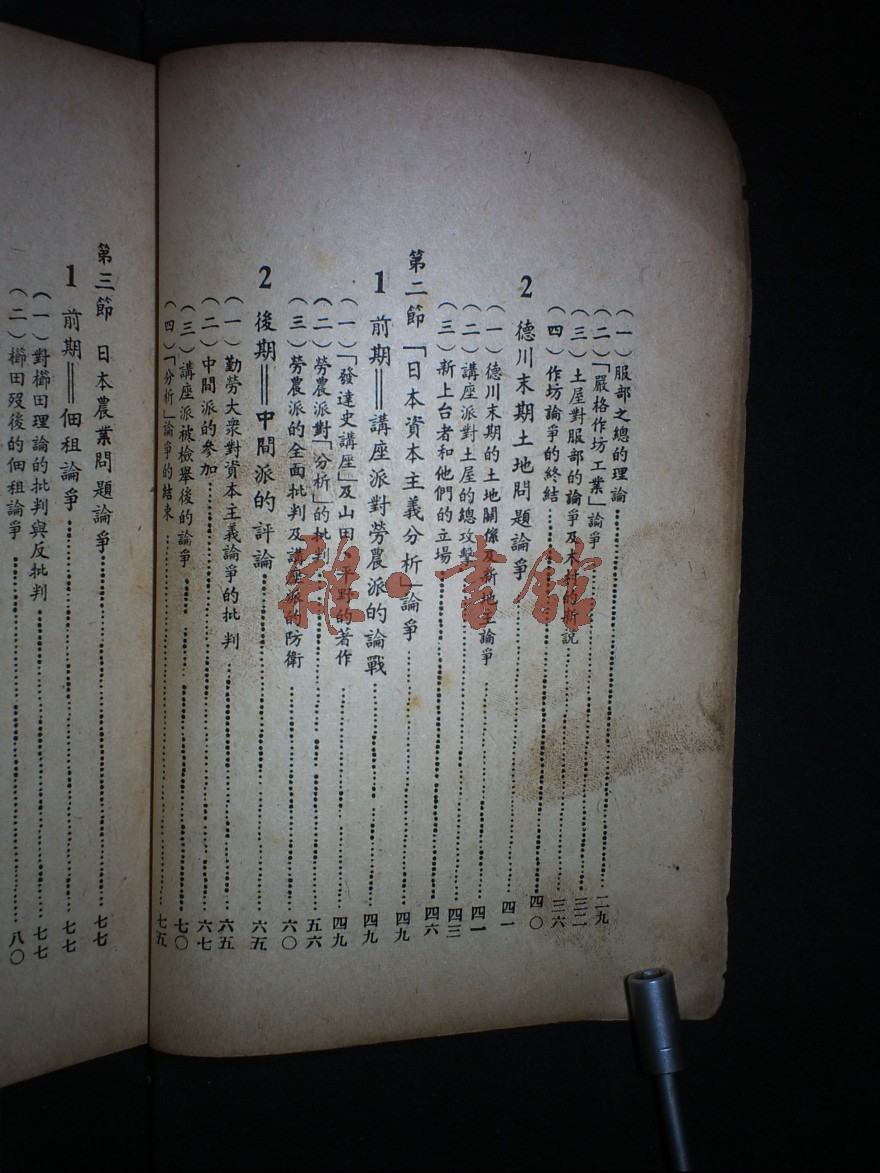 (一)服部之總的理論 二九
(二)「嚴格作坊工業」論爭 三二
(三)土屋對服部的論爭及木村的新說 三六
(四)作坊論爭的終結 四〇
2 德川末期土地問題論爭 四一
(一)德川末期的土地關係及新地主論爭 四一
(二)講座派對土屋的總攻擊 四三
(三)新上台者和他們的立場 四六
第二節 「日本資本主義分析」論爭 四九
1 前期=講座派對勞農派的論戰 四九
(一)「發達史講座」及山田平野的著作 四九
(二)勞農派對「分析」的批判 五六
(三)勞農派的全面批判及講座派的防衛 六〇
2 後期=中間派的評論 六五
(一)勤勞大衆對資本主義論爭的批判 六五
(二)中間派的參加 六七
(三)講座派被檢舉後的論爭 七〇
(四)「分析」論爭的結束 七五
第三節 日本農業問題論爭 七七
1 前期=佃租論爭 七七
(一)對櫛田理論的批判與反批判 七七
(二)櫛田歿後的佃租論爭 八〇
雜·書館